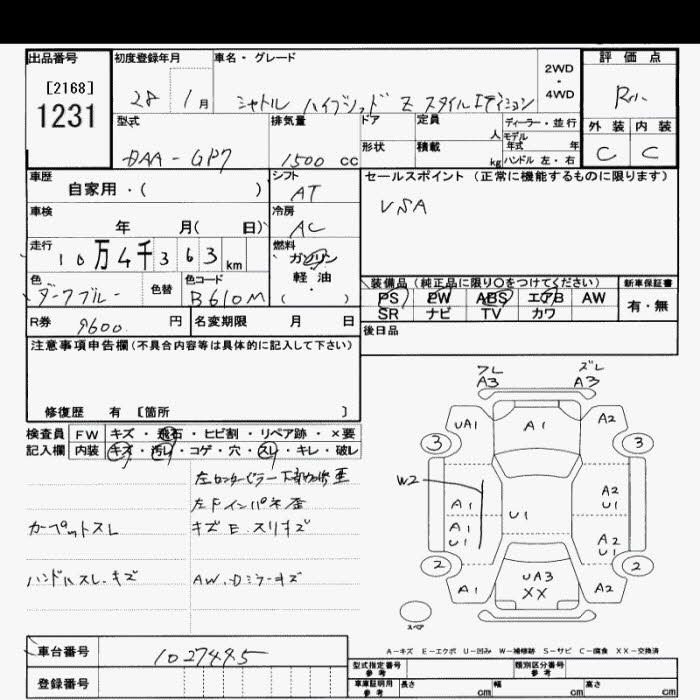 出品番号 初度登録年月 車名・グレード 2WD ・ 4WD 評価点
[2168]
1231
28 1月 シャトル ハイブリッド Z スタイルエディション
外装 内装
C C
型式 排気量 ドア 定員 人 ディーラー・並行
モデル年式 年
DAA-GP7 1500 cc 形状 積載 kg ハンドル 左・右
車歴 シフト セールスポイント(正常に機能するものに限ります)
自家用・( ) AT VSA
車検 冷房
年 月( 日) AC
走行 燃料
10万4千363km ガソリン
軽・油
( )
色 色替 色コード 装備品(純正品に限り○をつけてください) 新車保証書
ダークブルー B610M PS PW ABS エアB AW 有・無
SR ナビ TV カワ
R券 9600 円 名変期限 月 日
後日品
注意事項申告欄(不具合内容等は具体的に記入して下さい)
修復歴 有 [箇所 ]
検査員 FW キズ・飛石・ヒビ割・リペア跡・×要
記入欄 内装 キズ・汚レ・コゲ・穴・スレ・キレ・破レ
左センターピラー下部
左Fインパネ歪
カーペットスレ キズE.スリキズ
ハンドルスレ.キズ AW.Dミラーキズ
フレ ズレ
A3 A3
UA1 A1 A2
3 3
W2
A1 U1 A2
U1
A1
U1
A2
U1
2 2
A1 UA3
XX
A2
スペア
A-キズ E-エクボ U-凹み W-補修跡 S-サビ C-腐食 XX-交換済
車台番号 1027445
登録番号
型式指定番号 参考 類別区分番号 参考
車庫証明用 参考 長さ cm 幅 cm 高さ cm